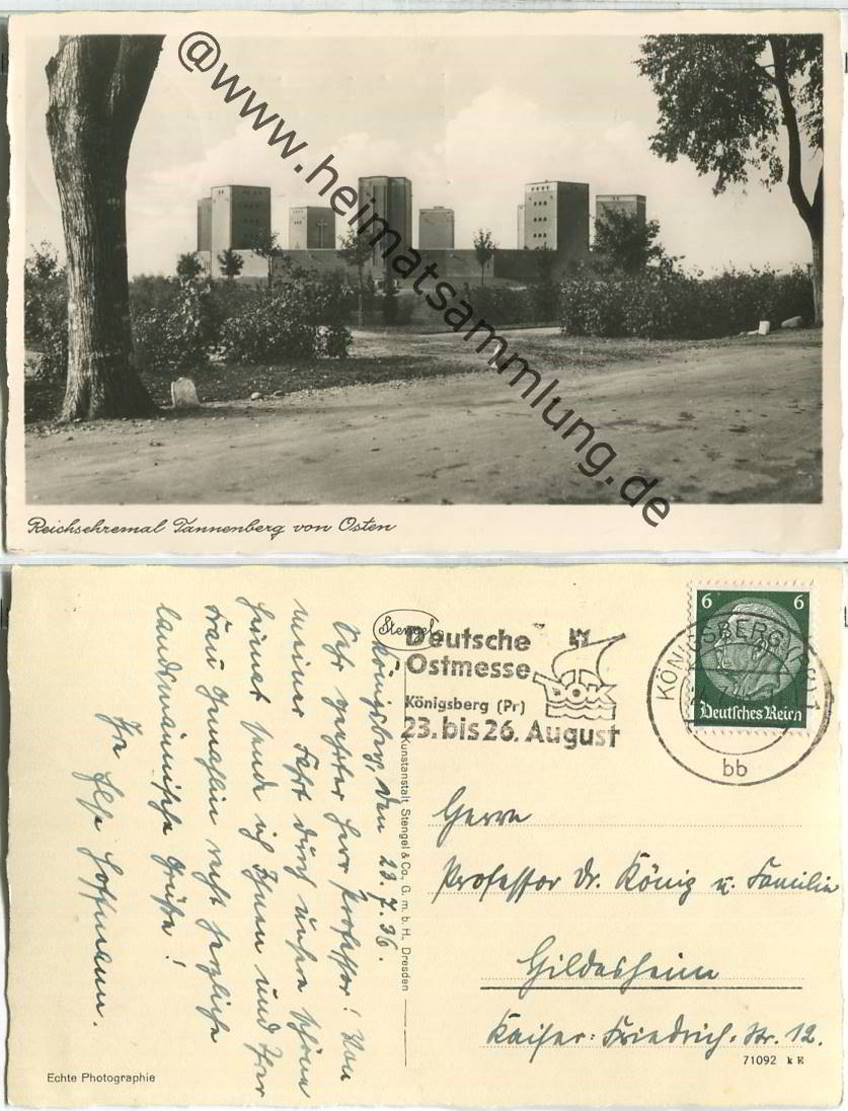 @www.heimatsammlung.de
Reichsehremal Tannenberg von Osten
Stengel
Deutsche
Ostmesse
Königsberg (Pr)
23. bis 26. August
DOK
KÖNIGSBERG (PR) 1
bb
6 6
Deutsches Reich
Königsberg, den 23.7.36.
Sehr geehrter Herr Professor! Von
meiner Fahrt durch unsere schöne
Heimat sende ich Ihnen und Ihrer
Frau Gemahlin recht herzliche
landsmännische Grüße!
Ihr Hoffmann.
Kunstanstalt Stengel & Co., G. m. b. H. Dresden
Herrn
Professor Dr. König u. Familie
Hildesheim
Kaiser-Friedrich-Str. 12.
71092 k E
Echte Photographie